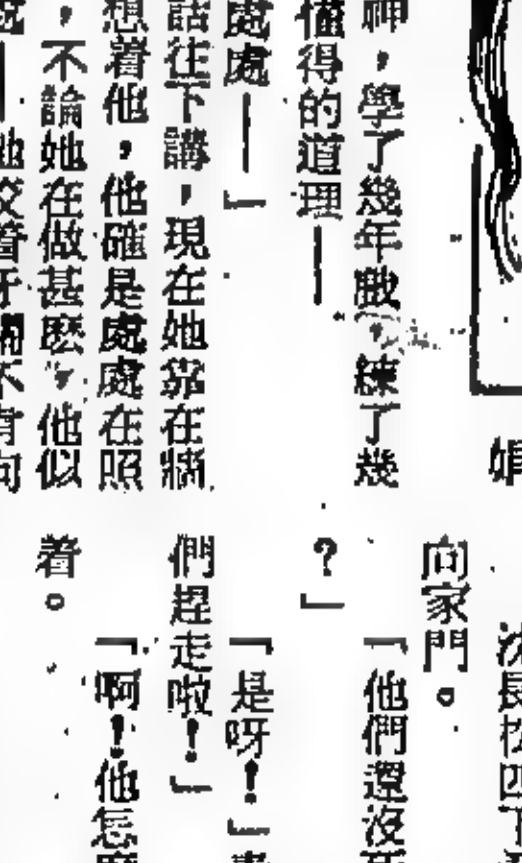 神，學了幾年戲，練了幾
懂得的道理——
處處——」
話往下講，現在她靠在牆
想着他，他確是處處在照
，不論她在做甚麽，他似
她咬着牙關不肯向
娟
沈長松四下
向家門。
「他們還沒
？」
「是呀！」
們趕走啦！」
「啊！他怎麽
着。